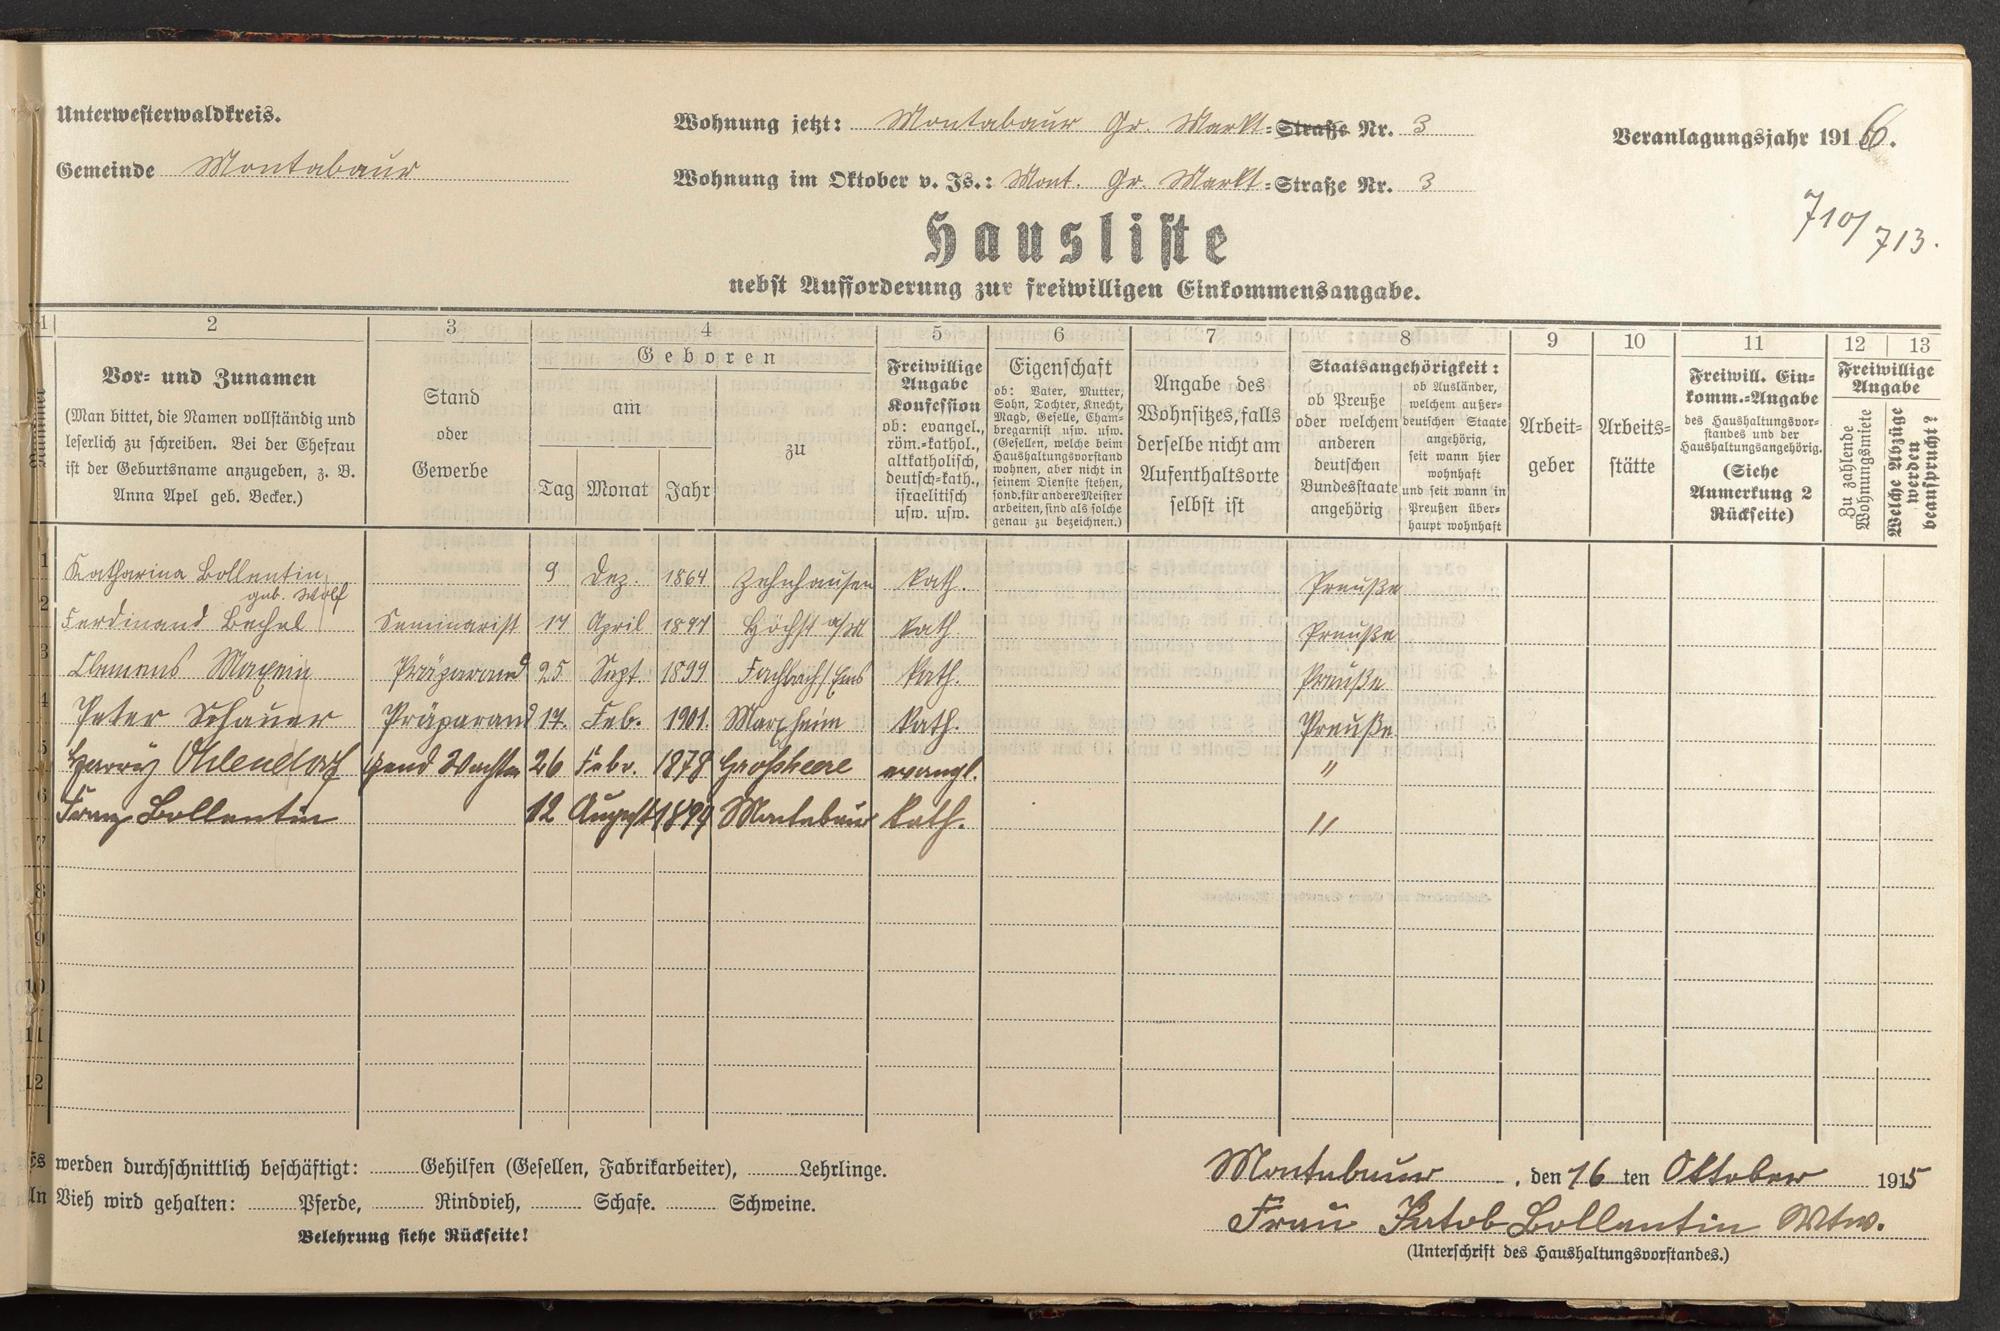 Unterwesterwaldkreis.
Gemeinde Montabaur
Wohnung jetzt: Montabaur Gr. Markt-Straße Nr. 3
Wohnung im Oktober v. Js.: Mont. Gr. Markt-Straße Nr. 3
Veranlagungsjahr 1916.
710/713.
Hausliste
nebst Aufforderung zur freiwilligen Einkommensangabe.
1 2 3 4 5 6 7 8 9 10 11 12 13
Vor- und Zunamen
(Man bittet, die Namen vollständig und
leserlich zu schreiben. Bei der Ehefrau
ist der Geburtsname anzugeben, z. B.
Anna Apel geb. Becker.)
Stand
oder
Gewerbe
Geboren
am
Tag Monat Jahr
zu
Freiwillige
Angabe
Konfession
ob: evangel.,
röm.-kathol.,
altkatholisch,
deutsch-kath.,
israelitisch
usw. usw.
Eigenschaft
ob: Vater, Mutter,
Sohn, Tochter, Knecht,
Magd, Geselle, Cham-
bregarnist usw. usw.
(Gesellen, welche beim
Haushaltungsvorstand
wohnen, aber nicht in
seinem Dienste stehen,
sond. für andere Meister
arbeiten, sind als solche
genau zu bezeichnen.)
Angabe des
Wohnsitzes, falls
derselbe nicht am
Aufenthaltsorte
selbst ist
Staatsangehörigkeit:
ob Preuße
oder welchem
anderen
deutschen
Bundesstaate
angehörig
ob Ausländer,
welchem außer-
deutschen Staate
angehörig,
seit wann hier
wohnhaft
und seit wann in
Preußen über-
haupt wohnhaft
Arbeit-
geber
Arbeits-
stätte
Freiwill. Ein-
komm.-Angabe
des Haushaltungsvor-
standes und der
Haushaltungsangehörig.
(Siehe
Anmerkung 2
Rückseite)
Freiwillige
Angabe
Zu zahlende
Wohnungsmiete
Welche Abzüge
werden
beansprucht?
1 Katharina Bollentin 9 Dez. 1864 Zehnhausen kath. Preuße
geb. Wolf
2 Ferdinand Bechel Seminarist 17 April 1897 Höchst a/M kath. Preuße
3 Clemens Maxein Präparand 25 Sept. 1899 Fachbach/Ems kath. Preuße
4 Peter Schauer Präparand 17. Feb. 1901. Marxheim kath. Preuße
5 Harry Ohlendorf Gend Wachtm 26 Febr. 1878 Großheere evangl. "
6 Franz Bollentin 12 August 1899 Montabaur kath. "
7
8
9
10
11
12
Es werden durchschnittlich beschäftigt: Gehilfen (Gesellen, Fabrikarbeiter), Lehrlinge.
An Vieh wird gehalten: Pferde, Rindvieh, Schafe. Schweine.
Belehrung siehe Rückseite!
Montabaur, den 16 ten Oktober 1915
Frau Jakob Bollentin Wtw.
(Unterschrift des Haushaltungsvorstandes.)